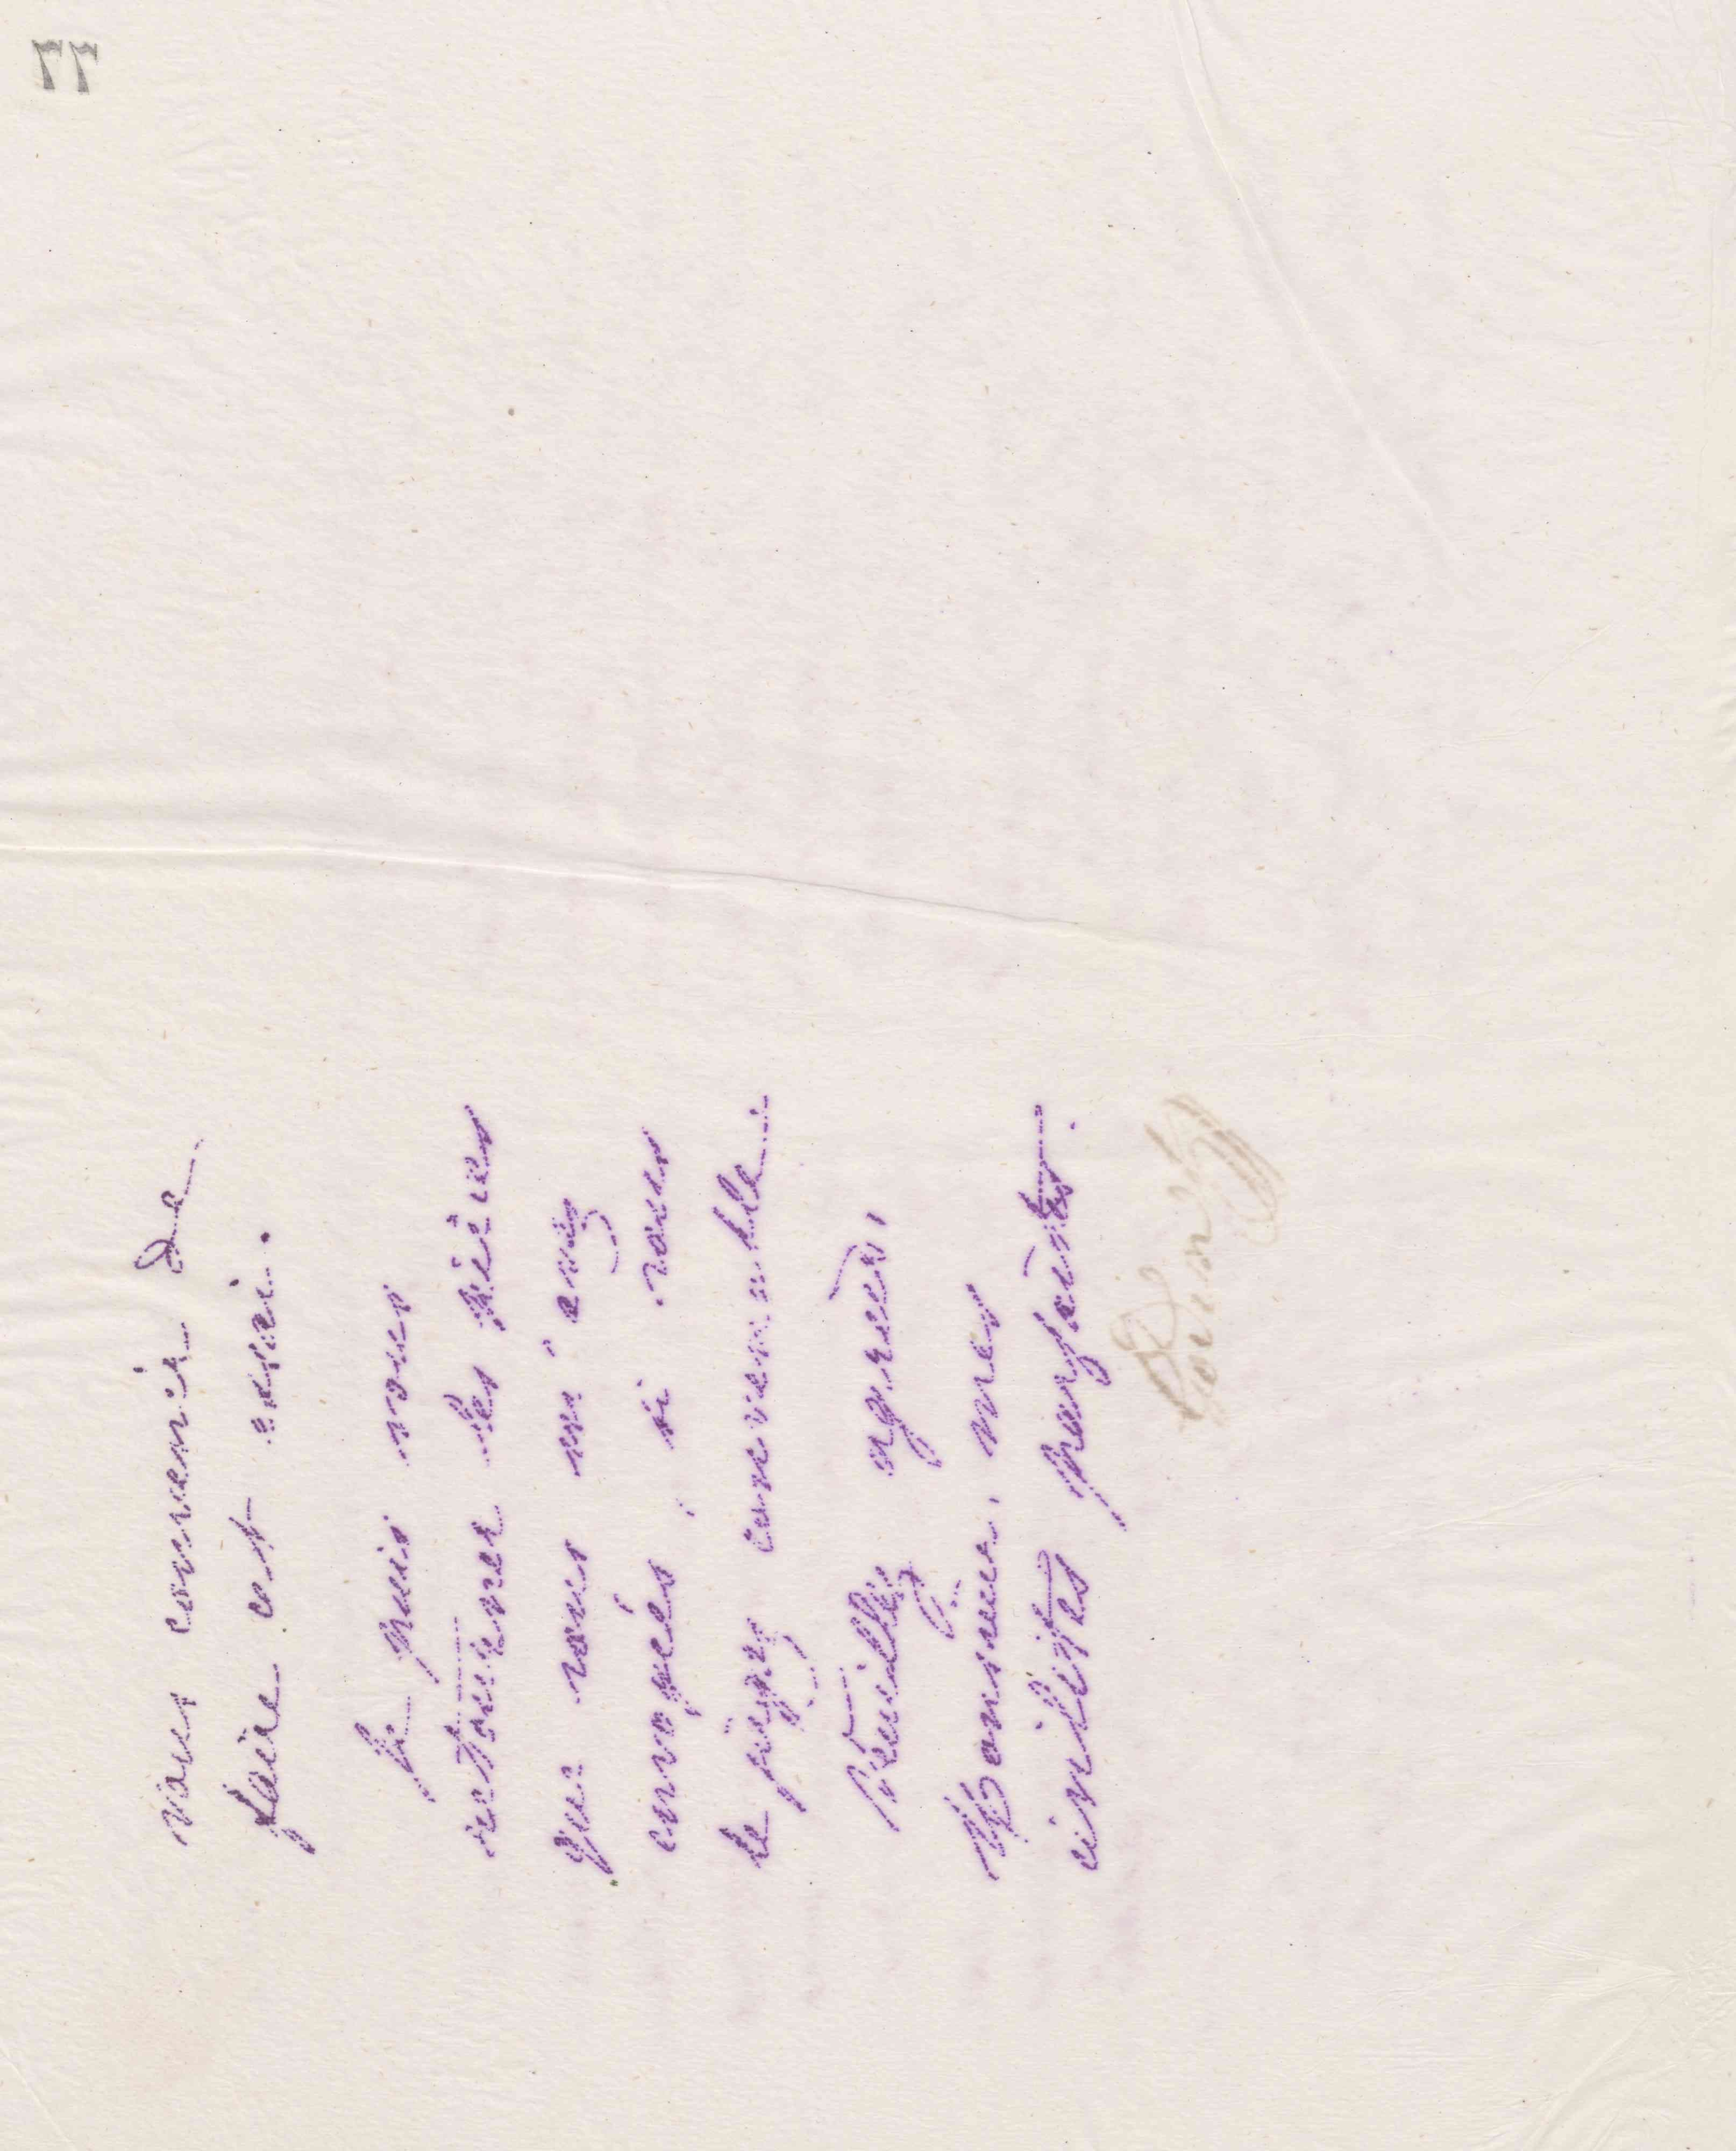 77
vous convenir de
faire cet essai.
Je puis vous
retourner les pièces
que vous m'avez
envoyées, si vous
le jugez convenable.
Veuillez agréer,
Monsieur, mes
civilités parfaites.
Godin